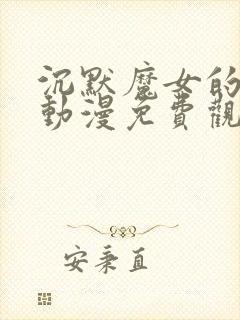 沉默魔女的
動漫免費觀
安秉直